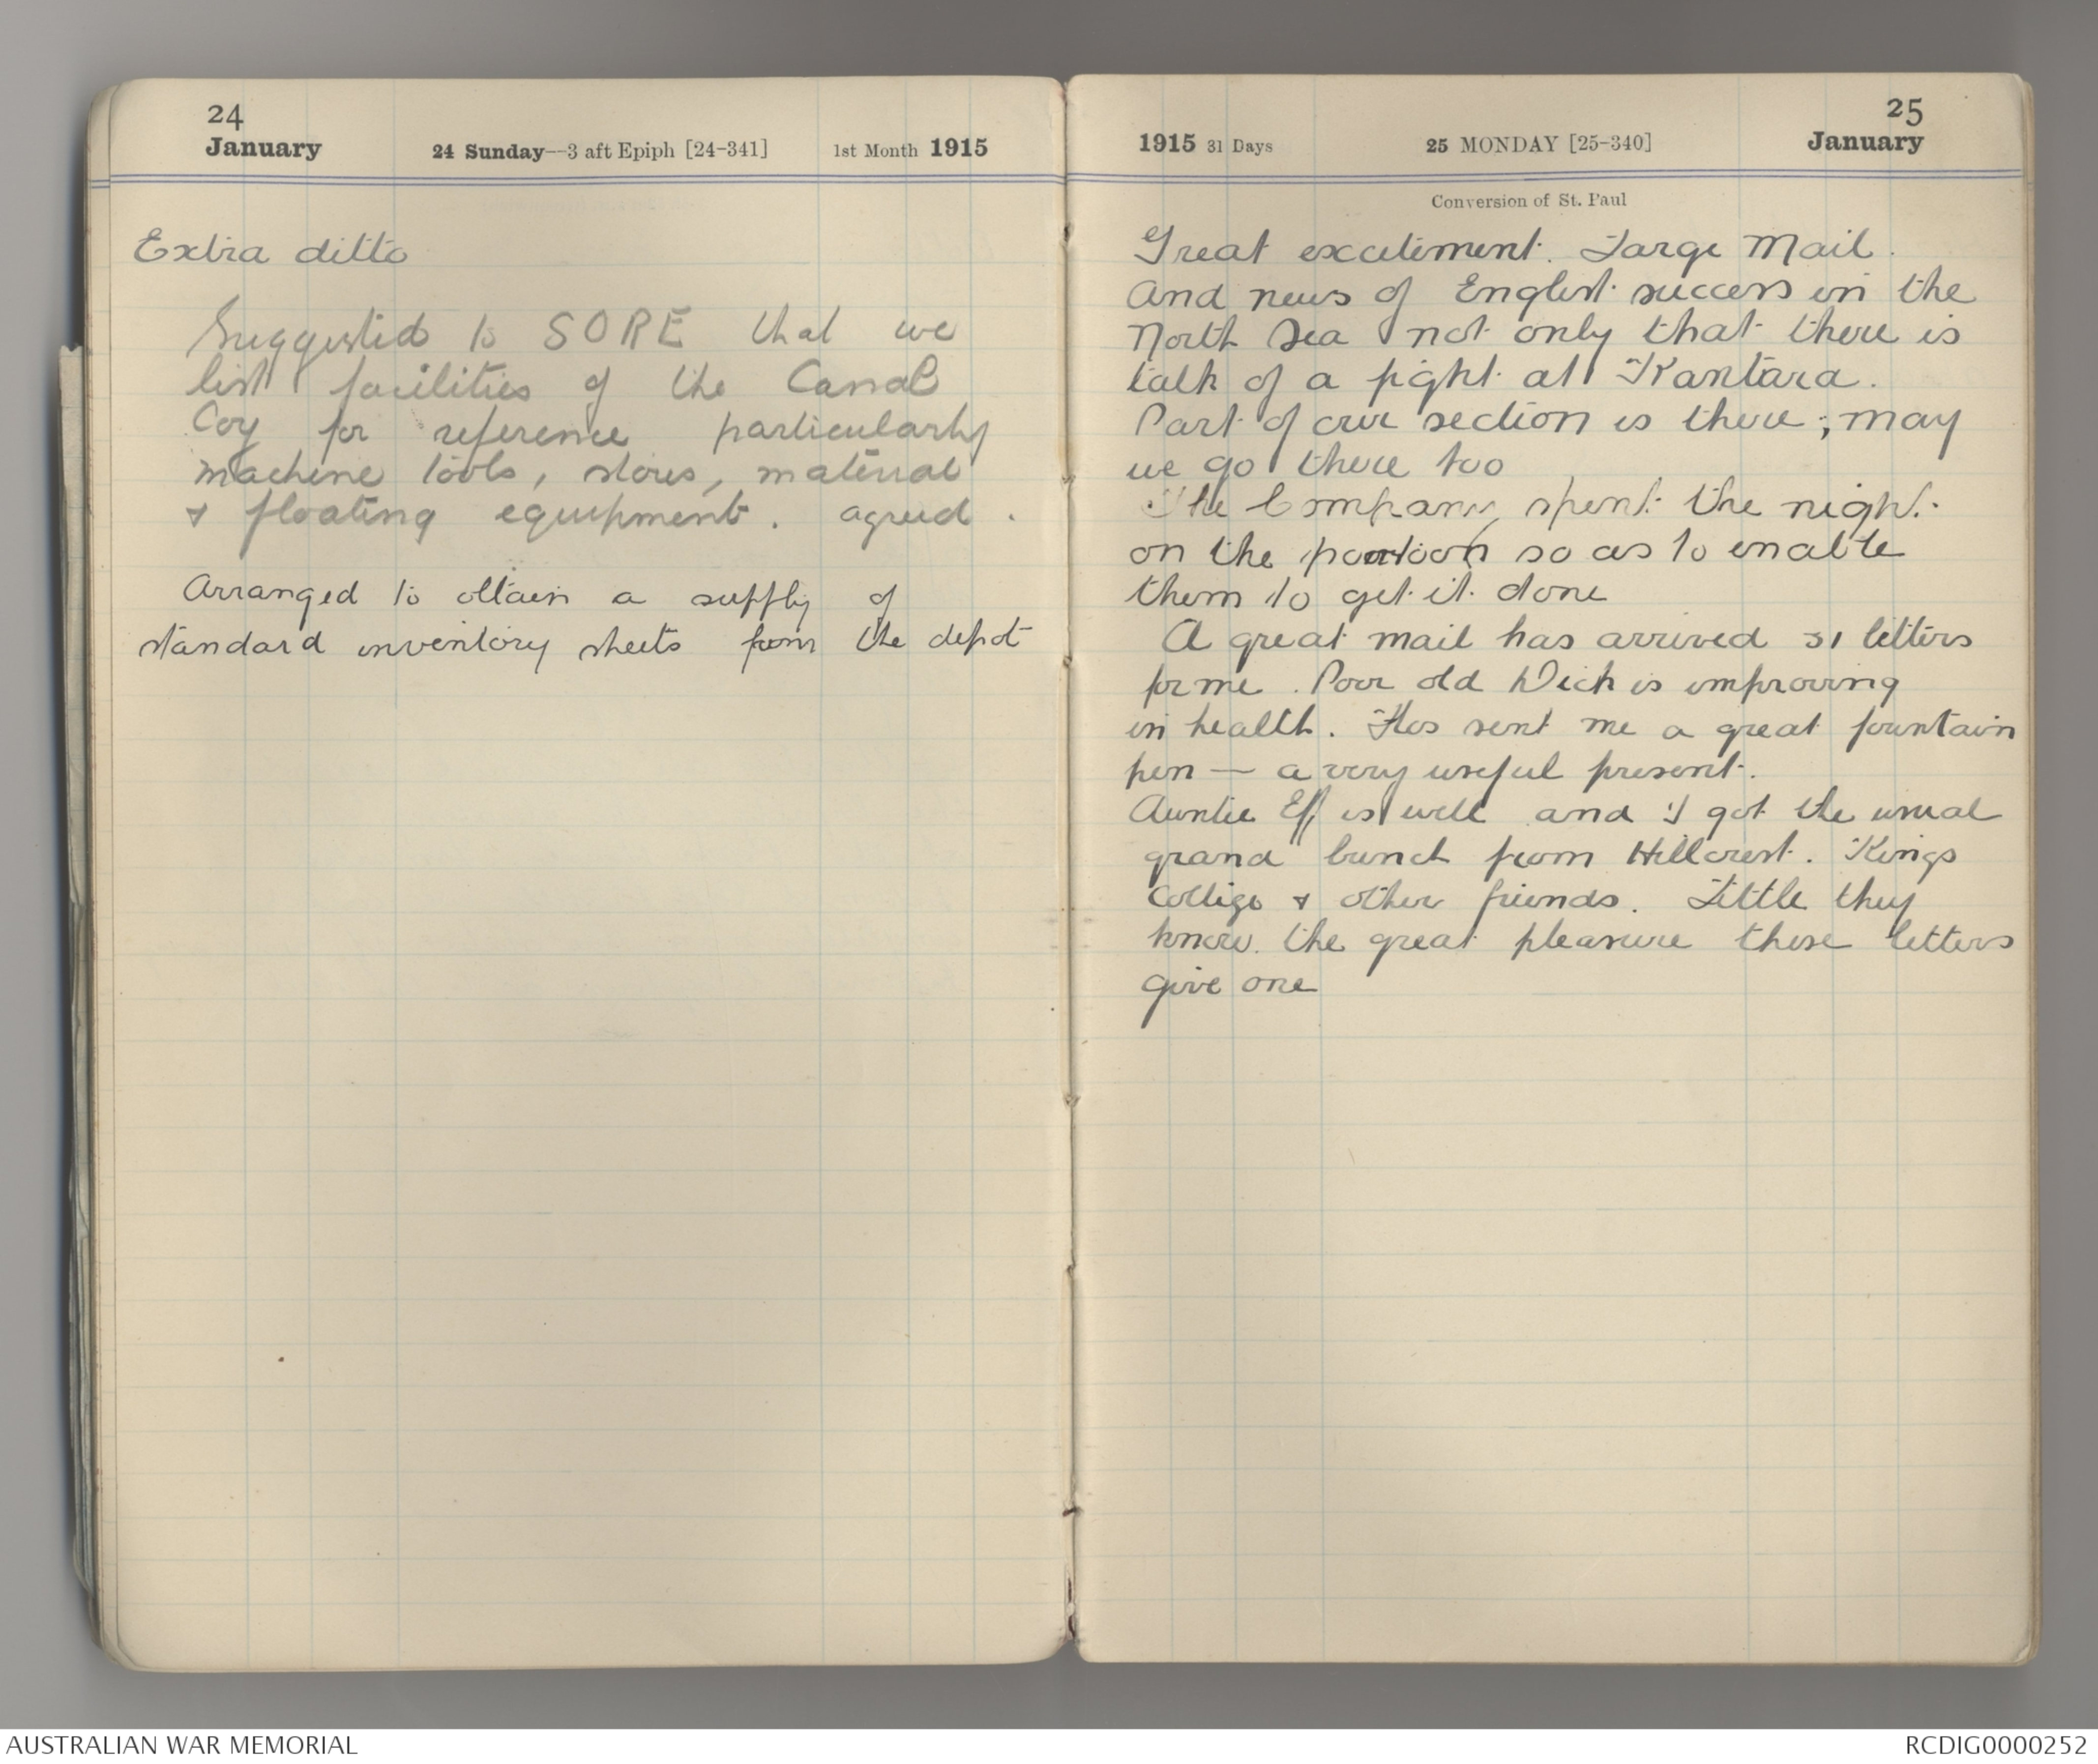 24
January 24 Sunday—3 aft Epiph [24-341] 1st Month 1915
Extra ditto
Suggested to SORE that we
list facilities of the Canal
Coy for reference particularly
machine tools, stores, material
& floating equipment. agreed.
Arranged to obtain a supply of
standard inventory sheets from the depot
25
1915 31 Days 25 MONDAY [25-340] January
Conversion of St. Paul
Great excitement. Large Mail.
And news of English success in the
North Sea not only that there is
talk of a fight at Kantara.
Part of our section is there; may
we go there too
The Company spent the night
on the pontoon so as to enable
them to get it done
A great mail has arrived 31 letters
for me. Poor old Dick is improving
in health. Flos sent me a great fountain
pen — a very useful present.
Auntie Eff is well and I got the usual
grand bunch from Hillcrest. Kings
College & other friends. Little they
know the great pleasure these letters
give one
AUSTRALIAN WAR MEMORIAL RCDIG0000252